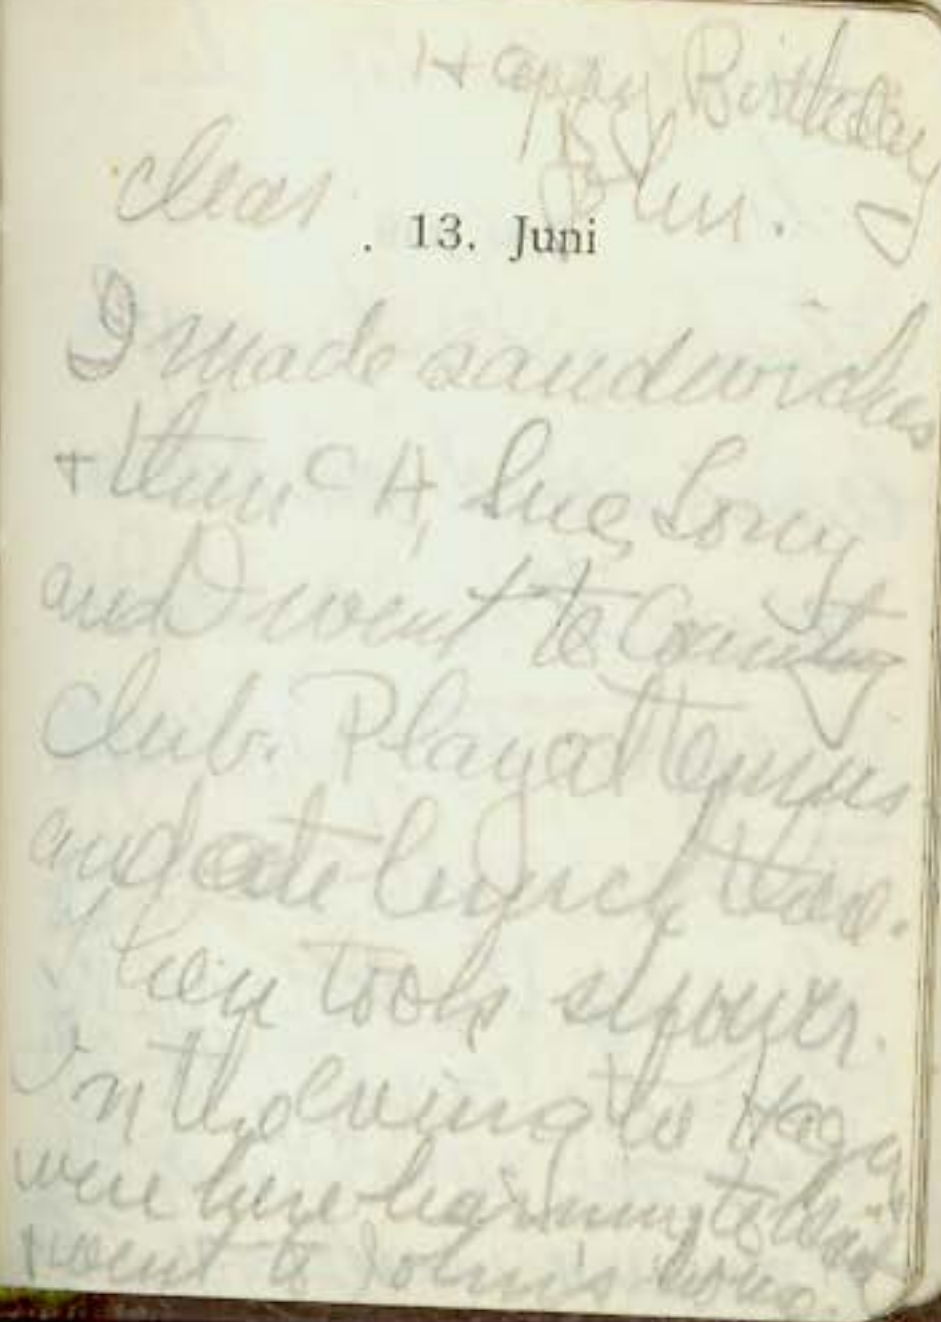 Happy Birthday
clear John.
. 13. Juni
I made sandwiches
+ then C A, Sue, Lorry
and I went to Country
Club. Played tennis
and ate lunch there.
Then took shower.
In the evening to
were here learning to
+ went to John's home.